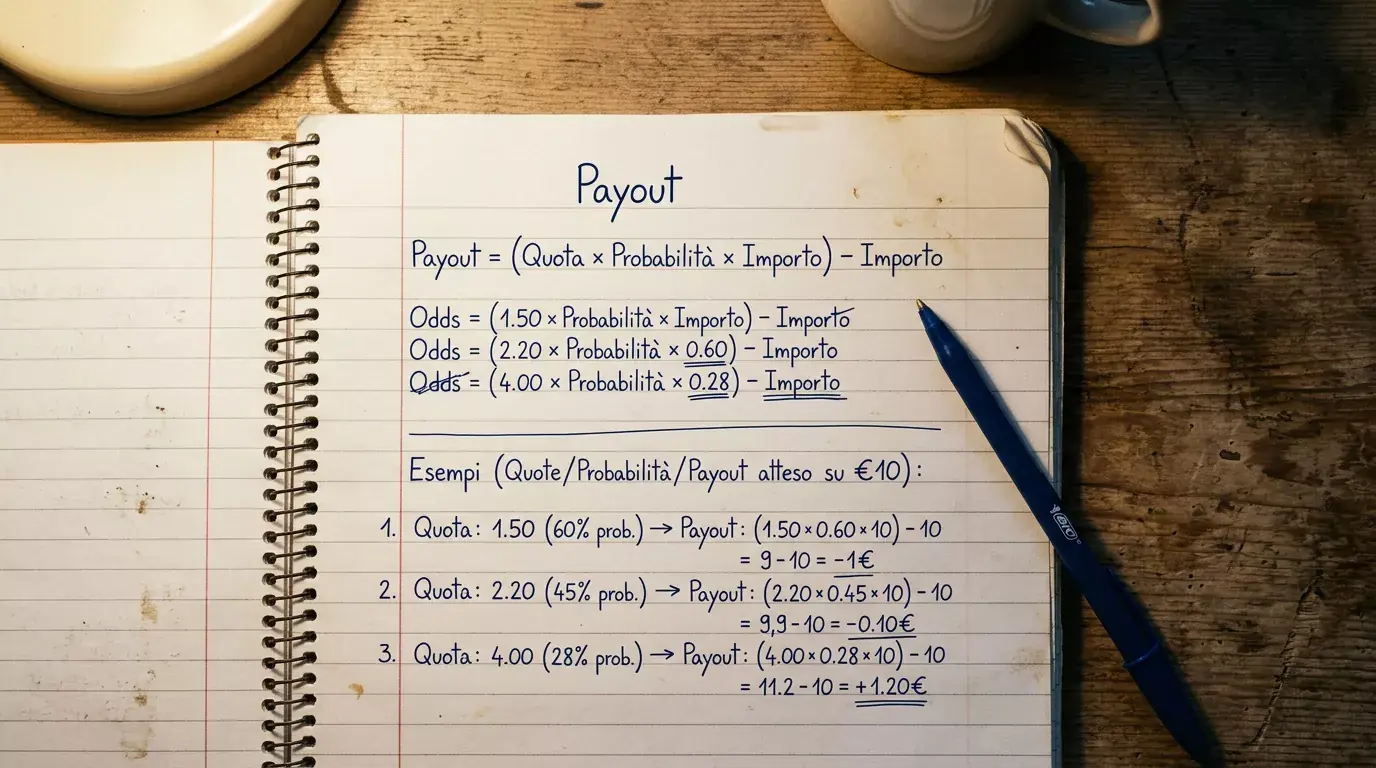 Payout
Payout = (Quota × Probabilità × Importo) − Importo
Odds = (1.50 × Probabilità × Importo) − Importo
Odds = (2.20 × Probabilità × 0.60) − Importo
Odds = (4.00 × Probabilità × 0.28) − Importo
Esempi (Quote/Probabilità/Payout atteso su €10):
1. Quota: 1.50 (60% prob.) → Payout: (1.50×0.60×10) − 10
= 9 − 10 = −1€
2. Quota: 2.20 (45% prob.) → Payout: (2.20×0.45×10) − 10
= 9,9 − 10 = −0.10€
3. Quota: 4.00 (28% prob.) → Payout: (4.00×0.28×10) − 10
= 11.2 − 10 = +1.20€
BIC